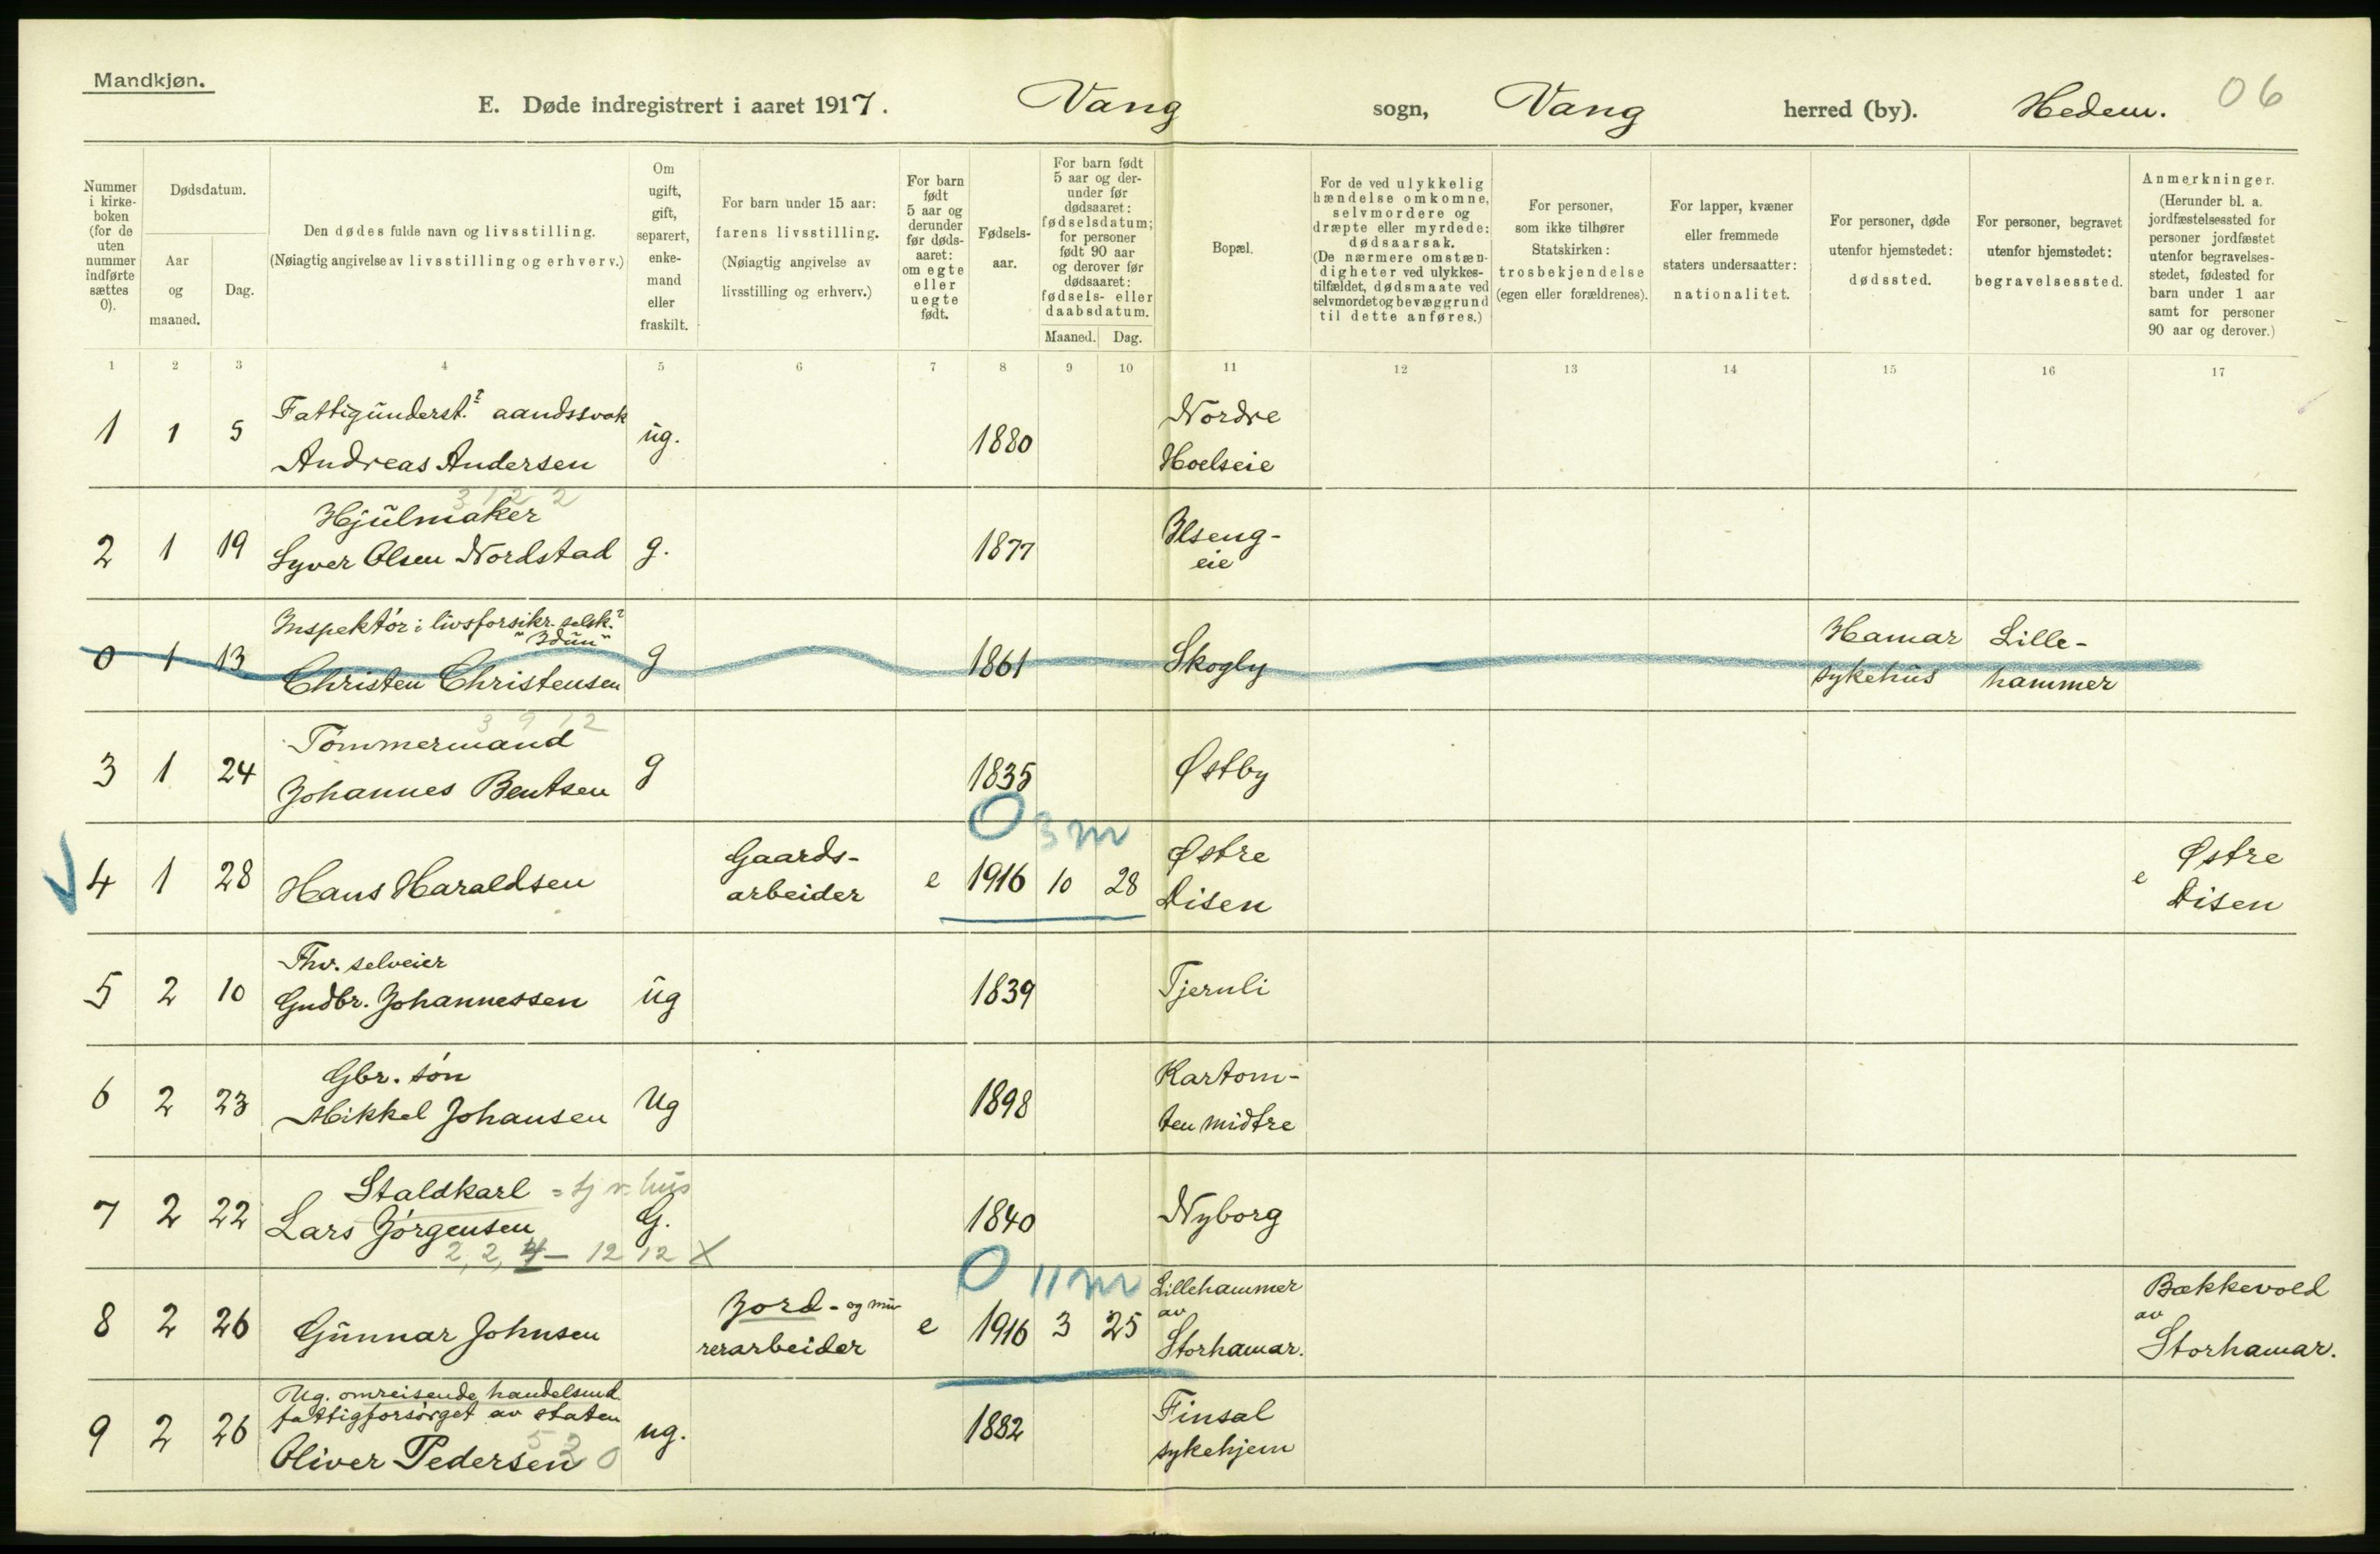 Mandkjøn.
E. Døde indregistrert i aaret 1917. Vang sogn, Vang herred (by). Hedem. 06
Nummer i kirke-boken (for de uten nummer indførte sættes 0).
Dødsdatum.
Aar og maaned.
Dag.
Den dødes fulde navn og livsstilling.
(Nøiagtig angivelse av livsstilling og erhverv.)
Om ugift, gift, separert, enke-mand eller fraskilt.
For barn under 15 aar: farens livsstilling. (Nøiagtig angivelse av livsstilling og erhverv.)
For barn født 5 aar og derunder før døds-aaret: om egte eller uegte født.
Fødsels-aar.
For barn født 5 aar og der-under før dødsaaret: fødselsdatum; for personer født 90 aar og derover før dødsaaret: fødsels- eller daabsdatum.
Maaned. Dag.
Bopæl.
For de ved ulykkelig hændelse omkomne, selvmordere og dræpte eller myrdede: dødsaarsak. (De nærmere omstæn-digheter ved ulykkes-tilfældet, dødsmaate ved selvmordet og bevæggrund til dette anføres.)
For personer, som ikke tilhører Statskirken: trosbekjendelse (egen eller forældrenes).
For lapper, kvæner eller fremmede staters undersaatter: nationalitet.
For personer, døde utenfor hjemstedet: dødssted.
For personer, begravet utenfor hjemstedet: begravelsessted.
Anmerkninger. (Herunder bl. a. jordfæstelsessted for personer jordfæstet utenfor begravelses-stedet, fødested for barn under 1 aar samt for personer 90 aar og derover.)
1 2 3 4 5 6 7 8 9 10 11 12 13 14 15 16 17
Fattigünderst.? aandssvak Nordre
1 1 5 Andreas Andersen ug. 1880 Hoelseie
3 12 2
Hjülmaker Ilseng-
2 1 19 Syver Olsen Nordstad g. 1877 eie
Inspektör i livsforsikr. selsk.? "Idün" Hamar Lille-
0 1 13 Christen Christensen g 1861 Skogly sykehüs hammer
3 9 12
Tömmermand
3 1 24 Johannes Bentsen g 1835 Østby
0 3 m
Gaards- Østre Østre
4 1 28 Hans Haraldsen arbeider e 1916 10 28 Disen e Disen
Fhv. selveier
5 2 10 Gudbr. Johannessen üg 1839 Tjernli
Gbr. sön Kartom-
6 2 23 Mikkel Johansen Ug 1898 ten midtre
Staldkarl = tj v. hüs
7 2 22 Lars Jörgensen G. 1840 Nyborg
2, 2, 4 — 12 12 X
0 11 m
Jord- og mü- Lillehammer Bækkevold
av av
8 2 26 Günnar Johnsen rerarbeider e 1916 3 25 Storhamar. Storhamar.
Ug. omreisende handelsmd.
fattigforsörget av staten Finsal
9 2 26 Oliver Pedersen ug. 1882 sykehjem
5 2 0